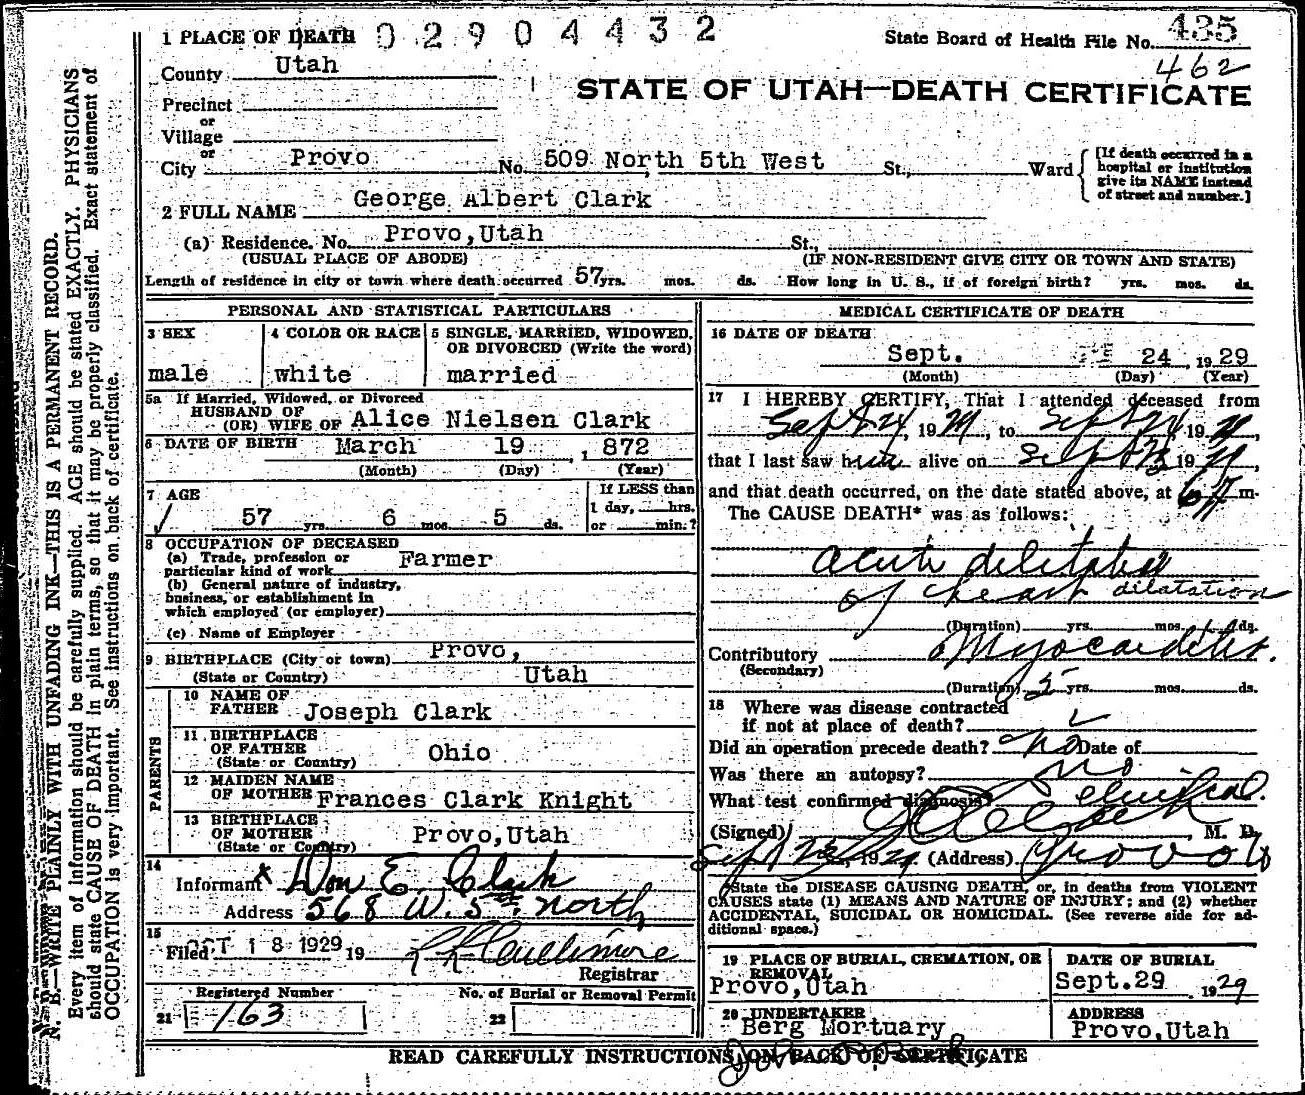 1 PLACE OF DEATH 02904432
State Board of Health File No. 435
462
County Utah
STATE OF UTAH—DEATH CERTIFICATE
Precinct
or
Village
or
City Provo No. 509 North 5th West St., Ward
[If death occurred in a
hospital or institution
give its NAME instead
of street and number.]
2 FULL NAME George Albert Clark
(a) Residence. No. Provo, Utah St.,
(USUAL PLACE OF ABODE) (IF NON-RESIDENT GIVE CITY OR TOWN AND STATE)
Length of residence in city or town where death occurred 57 yrs. mos. ds. How long in U. S., if of foreign birth? yrs. mos. ds.
PERSONAL AND STATISTICAL PARTICULARS
3 SEX
male
4 COLOR OR RACE
white
5 SINGLE, MARRIED, WIDOWED,
OR DIVORCED (Write the word)
married
5a If Married, Widowed, or Divorced
HUSBAND OF
(OR) WIFE OF Alice Nielsen Clark
6 DATE OF BIRTH March 19, 1872
(Month) (Day) (Year)
7 AGE
57 yrs. 6 mos. 5 ds.
If LESS than
1 day, hrs.
or min.?
8 OCCUPATION OF DECEASED
(a) Trade, profession or
particular kind of work Farmer
(b) General nature of industry,
business, or establishment in
which employed (or employer)
(c) Name of Employer
9 BIRTHPLACE (City or town) Provo,
(State or Country) Utah
PARENTS
10 NAME OF
FATHER Joseph Clark
11 BIRTHPLACE
OF FATHER Ohio
(State or Country)
12 MAIDEN NAME
OF MOTHER Frances Clark Knight
13 BIRTHPLACE
OF MOTHER Provo, Utah
(State or Country)
14
Informant Don E. Clark
Address 568 W. 5th North
15
Filed OCT 18 1929 19
Registrar
Registered Number
21 163
No. of Burial or Removal Permit
22
MEDICAL CERTIFICATE OF DEATH
16 DATE OF DEATH
Sept. 24, 1929
(Month) (Day) (Year)
17 I HEREBY CERTIFY, That I attended deceased from
Sept 24, 1929, to Sept 24, 1929,
that I last saw him alive on Sept 23, 1929,
and that death occurred, on the date stated above, at m.
The CAUSE DEATH* was as follows:
acute dilitation
of heart dilatation
(Duration) yrs. mos. ds.
Contributory Myocarditis.
(Secondary)
(Duration) 5 yrs. mos. ds.
18 Where was disease contracted
if not at place of death?
Did an operation precede death? no Date of
Was there an autopsy? no
What test confirmed diagnosis? clinical.
(Signed) , M. D.
Sept 1929 (Address) Provo
*State the DISEASE CAUSING DEATH, or, in deaths from VIOLENT
CAUSES state (1) MEANS AND NATURE OF INJURY; and (2) whether
ACCIDENTAL, SUICIDAL OR HOMICIDAL. (See reverse side for ad-
ditional space.)
19 PLACE OF BURIAL, CREMATION, OR
REMOVAL
Provo, Utah
DATE OF BURIAL
Sept. 29, 1929
20 UNDERTAKER
Berg Mortuary
ADDRESS
Provo, Utah
READ CAREFULLY INSTRUCTIONS ON BACK OF CERTIFICATE
N. B.—WRITE PLAINLY WITH UNFADING INK—THIS IS A PERMANENT RECORD.
Every item of information should be carefully supplied. AGE should be stated EXACTLY. PHYSICIANS
should state CAUSE OF DEATH in plain terms, so that it may be properly classified. Exact statement of
OCCUPATION is very important. See instructions on back of certificate.